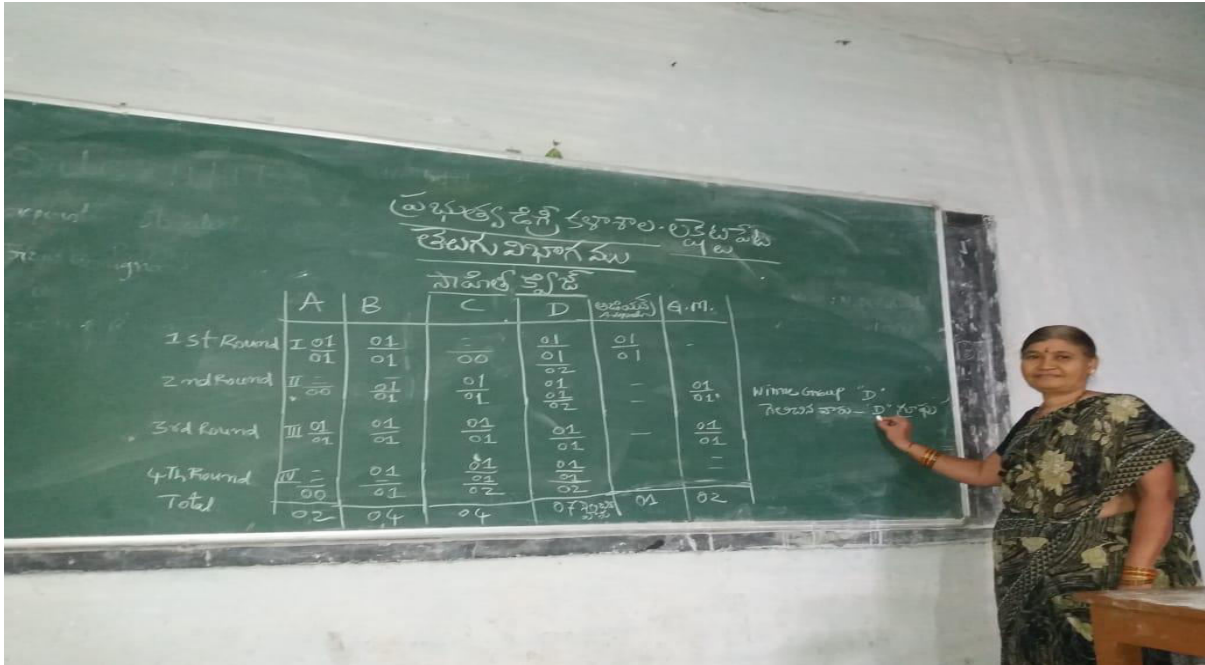 ప్రభుత్వ డిగ్రీ కళాశాల - లక్షెట్టిపేట
తెలుగు విభాగము
సాహితీ క్విజ్
A B C D ఆడియన్స్ Q.M.
1st Round I 01 01 = 01 01 -
01 01 00 01 01
02
2nd Round II = 01 01 01 - 01
00 01 01 01 01
02
3rd Round III 01 01 01 01 - 01
01 01 01 01 01
4Th Round IV = 01 01 01 =
00 01 01 01
02 02
Total 02 04 04 07 01 02
Group "D"
గెలిచిన వారు - "D" గ్రూపు